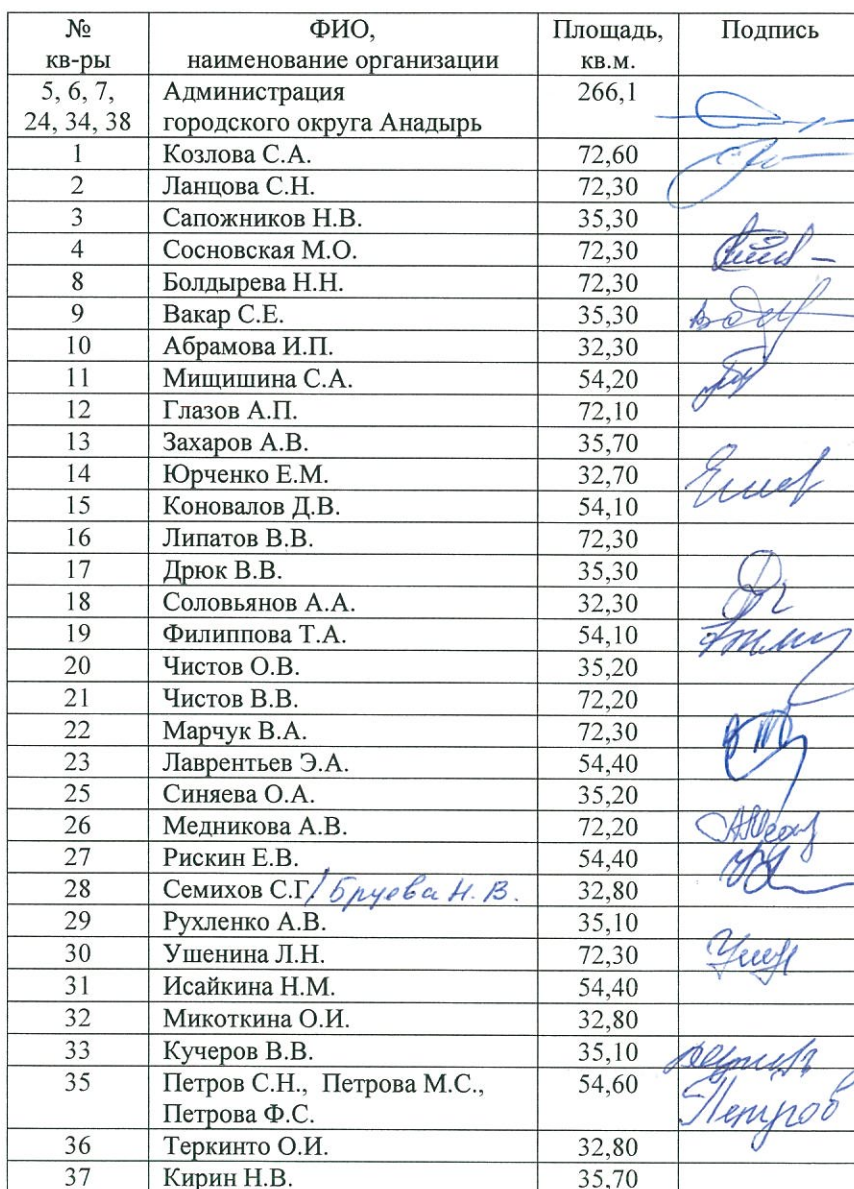 № ФИО, Площадь, Подпись
кв-ры наименование организации кв.м.
5, 6, 7, Администрация 266,1
24, 34, 38 городского округа Анадырь
1 Козлова С.А. 72,60
2 Ланцова С.Н. 72,30
3 Сапожников Н.В. 35,30
4 Сосновская М.О. 72,30
8 Болдырева Н.Н. 72,30
9 Вакар С.Е. 35,30
10 Абрамова И.П. 32,30
11 Мищишина С.А. 54,20
12 Глазов А.П. 72,10
13 Захаров А.В. 35,70
14 Юрченко Е.М. 32,70
15 Коновалов Д.В. 54,10
16 Липатов В.В. 72,30
17 Дрюк В.В. 35,30
18 Соловьянов А.А. 32,30
19 Филиппова Т.А. 54,10
20 Чистов О.В. 35,20
21 Чистов В.В. 72,20
22 Марчук В.А. 72,30
23 Лаврентьев Э.А. 54,40
25 Синяева О.А. 35,20
26 Медникова А.В. 72,20
27 Рискин Е.В. 54,40
28 Семихов С.Г./Бруева Н.В. 32,80
29 Рухленко А.В. 35,10
30 Ушенина Л.Н. 72,30
31 Исайкина Н.М. 54,40
32 Микоткина О.И. 32,80
33 Кучеров В.В. 35,10
35 Петров С.Н., Петрова М.С., 54,60 Петров
Петрова Ф.С.
36 Теркинто О.И. 32,80
37 Кирин Н.В. 35,70